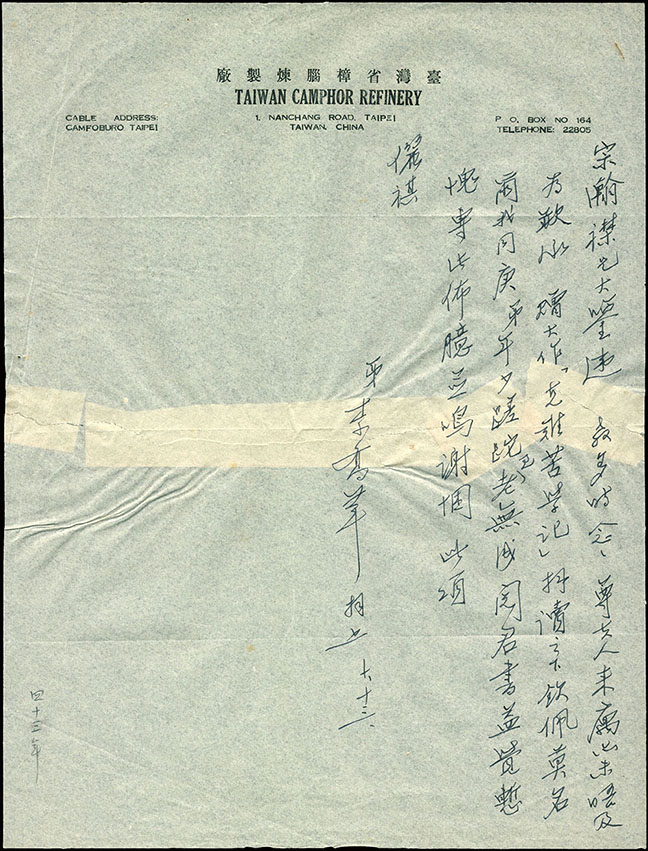 臺灣省樟腦煉製廠
TAIWAN CAMPHOR REFINERY
CABLE ADDRESS:
CAMFOBURO TAIPEI
1, NANCHANG ROAD, TAIPEI
TAIWAN, CHINA
P. O. BOX NO 164
TELEPHONE: 22805
宗瀚襟兄大鑒違 教多時念、尊夫人來寓未晤及
為歉承 贈大作「克難苦學記」拜讀之下欽佩莫名
爾我同庚弟年少蹉跎已老無成閱君書益覺慙
愧專此佈臆並鳴謝悃 此頌
儷祺
弟李 華 拜上 六十三、
四十三年